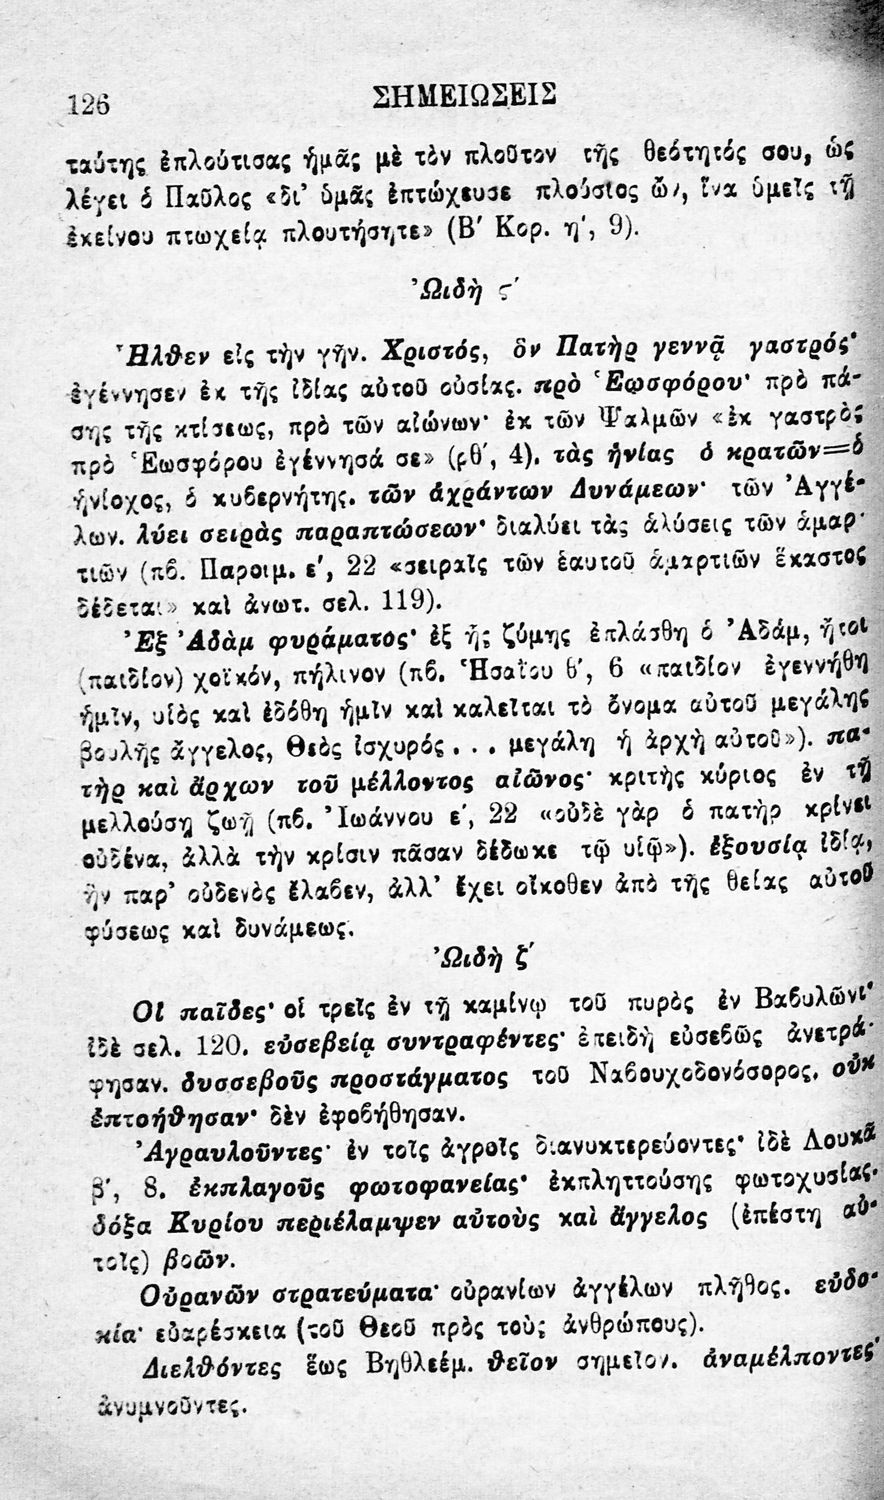 126
ΣΗΜΕΙΩΣΕΙΣ
ταύτης ἐπλούτισας ἡμᾶς μὲ τὸν πλοῦτον τῆς θεότητός σου, ὡς
λέγει ὁ Παῦλος «δι’ ὑμᾶς ἐπτώχευσε πλούσιος ὤν, ἵνα ὑμεῖς τῇ
ἐκείνου πτωχείᾳ πλουτήσητε» (Β′ Κορ. η′, 9).
Ὠιδὴ ϛ′
Ἦλθεν εἰς τὴν γῆν. Χριστός, ὃν Πατὴρ γεννᾷ γαστρός·
ἐγέννησεν ἐκ τῆς ἰδίας αὐτοῦ οὐσίας. πρὸ Ἑωσφόρου· πρὸ πά-
σης τῆς κτίσεως, πρὸ τῶν αἰώνων· ἐκ τῶν Ψαλμῶν «ἐκ γαστρὸς
πρὸ Ἑωσφόρου ἐγέννησά σε» (ρθ′, 4). τὰς ἡνίας ὁ κρατῶν=ὁ
ἡνίοχος, ὁ κυβερνήτης. τῶν ἀχράντων Δυνάμεων· τῶν Ἀγγέ-
λων. λύει σειρὰς παραπτώσεων· διαλύει τὰς ἁλύσεις τῶν ἁμαρ-
τιῶν (πβ. Παροιμ. ε′, 22 «σειραῖς τῶν ἑαυτοῦ ἁμαρτιῶν ἕκαστος
δέδεται» καὶ ἀνωτ. σελ. 119).
Ἐξ Ἀδὰμ φυράματος· ἐξ ἧς ζύμης ἐπλάσθη ὁ Ἀδάμ, ἤτοι
(παιδίον) χοϊκόν, πήλινον (πβ. Ἡσαΐου θ′, 6 «παιδίον ἐγεννήθη
ἡμῖν, υἱὸς καὶ ἐδόθη ἡμῖν καὶ καλεῖται τὸ ὄνομα αὐτοῦ μεγάλης
βουλῆς ἄγγελος, Θεὸς ἰσχυρός . . . μεγάλη ἡ ἀρχὴ αὐτοῦ»). πα-
τὴρ καὶ ἄρχων τοῦ μέλλοντος αἰῶνος· κριτὴς κύριος ἐν τῇ
μελλούσῃ ζωῇ (πβ. Ἰωάννου ε′, 22 «οὐδὲ γὰρ ὁ πατὴρ κρίνει
οὐδένα, ἀλλὰ τὴν κρίσιν πᾶσαν δέδωκε τῷ υἱῷ»). ἐξουσίᾳ ἰδίᾳ,
ἣν παρ’ οὐδενὸς ἔλαβεν, ἀλλ’ ἔχει οἴκοθεν ἀπὸ τῆς θείας αὐτοῦ
φύσεως καὶ δυνάμεως.
Ὠιδὴ ζ′
Οἱ παῖδες· οἱ τρεῖς ἐν τῇ καμίνῳ τοῦ πυρὸς ἐν Βαβυλῶνι·
ἰδὲ σελ. 120. εὐσεβείᾳ συντραφέντες· ἐπειδὴ εὐσεβῶς ἀνετρά-
φησαν. δυσσεβοῦς προστάγματος τοῦ Ναβουχοδονόσορος. οὐκ
ἐπτοήθησαν· δὲν ἐφοβήθησαν.
Ἀγραυλοῦντες· ἐν τοῖς ἀγροῖς διανυκτερεύοντες· ἰδὲ Λουκᾶ
β′, 8. ἐκπλαγοῦς φωτοφανείας· ἐκπληττούσης φωτοχυσίας.
δόξα Κυρίου περιέλαμψεν αὐτοὺς καὶ ἄγγελος (ἐπέστη αὐ-
τοῖς) βοῶν.
Οὐρανῶν στρατεύματα· οὐρανίων ἀγγέλων πλῆθος. εὐδο-
κία· εὐαρέσκεια (τοῦ Θεοῦ πρὸς τοὺς ἀνθρώπους).
Διελθόντες ἕως Βηθλεέμ. θεῖον σημεῖον. ἀναμέλποντες·
ἀνυμνοῦντες.